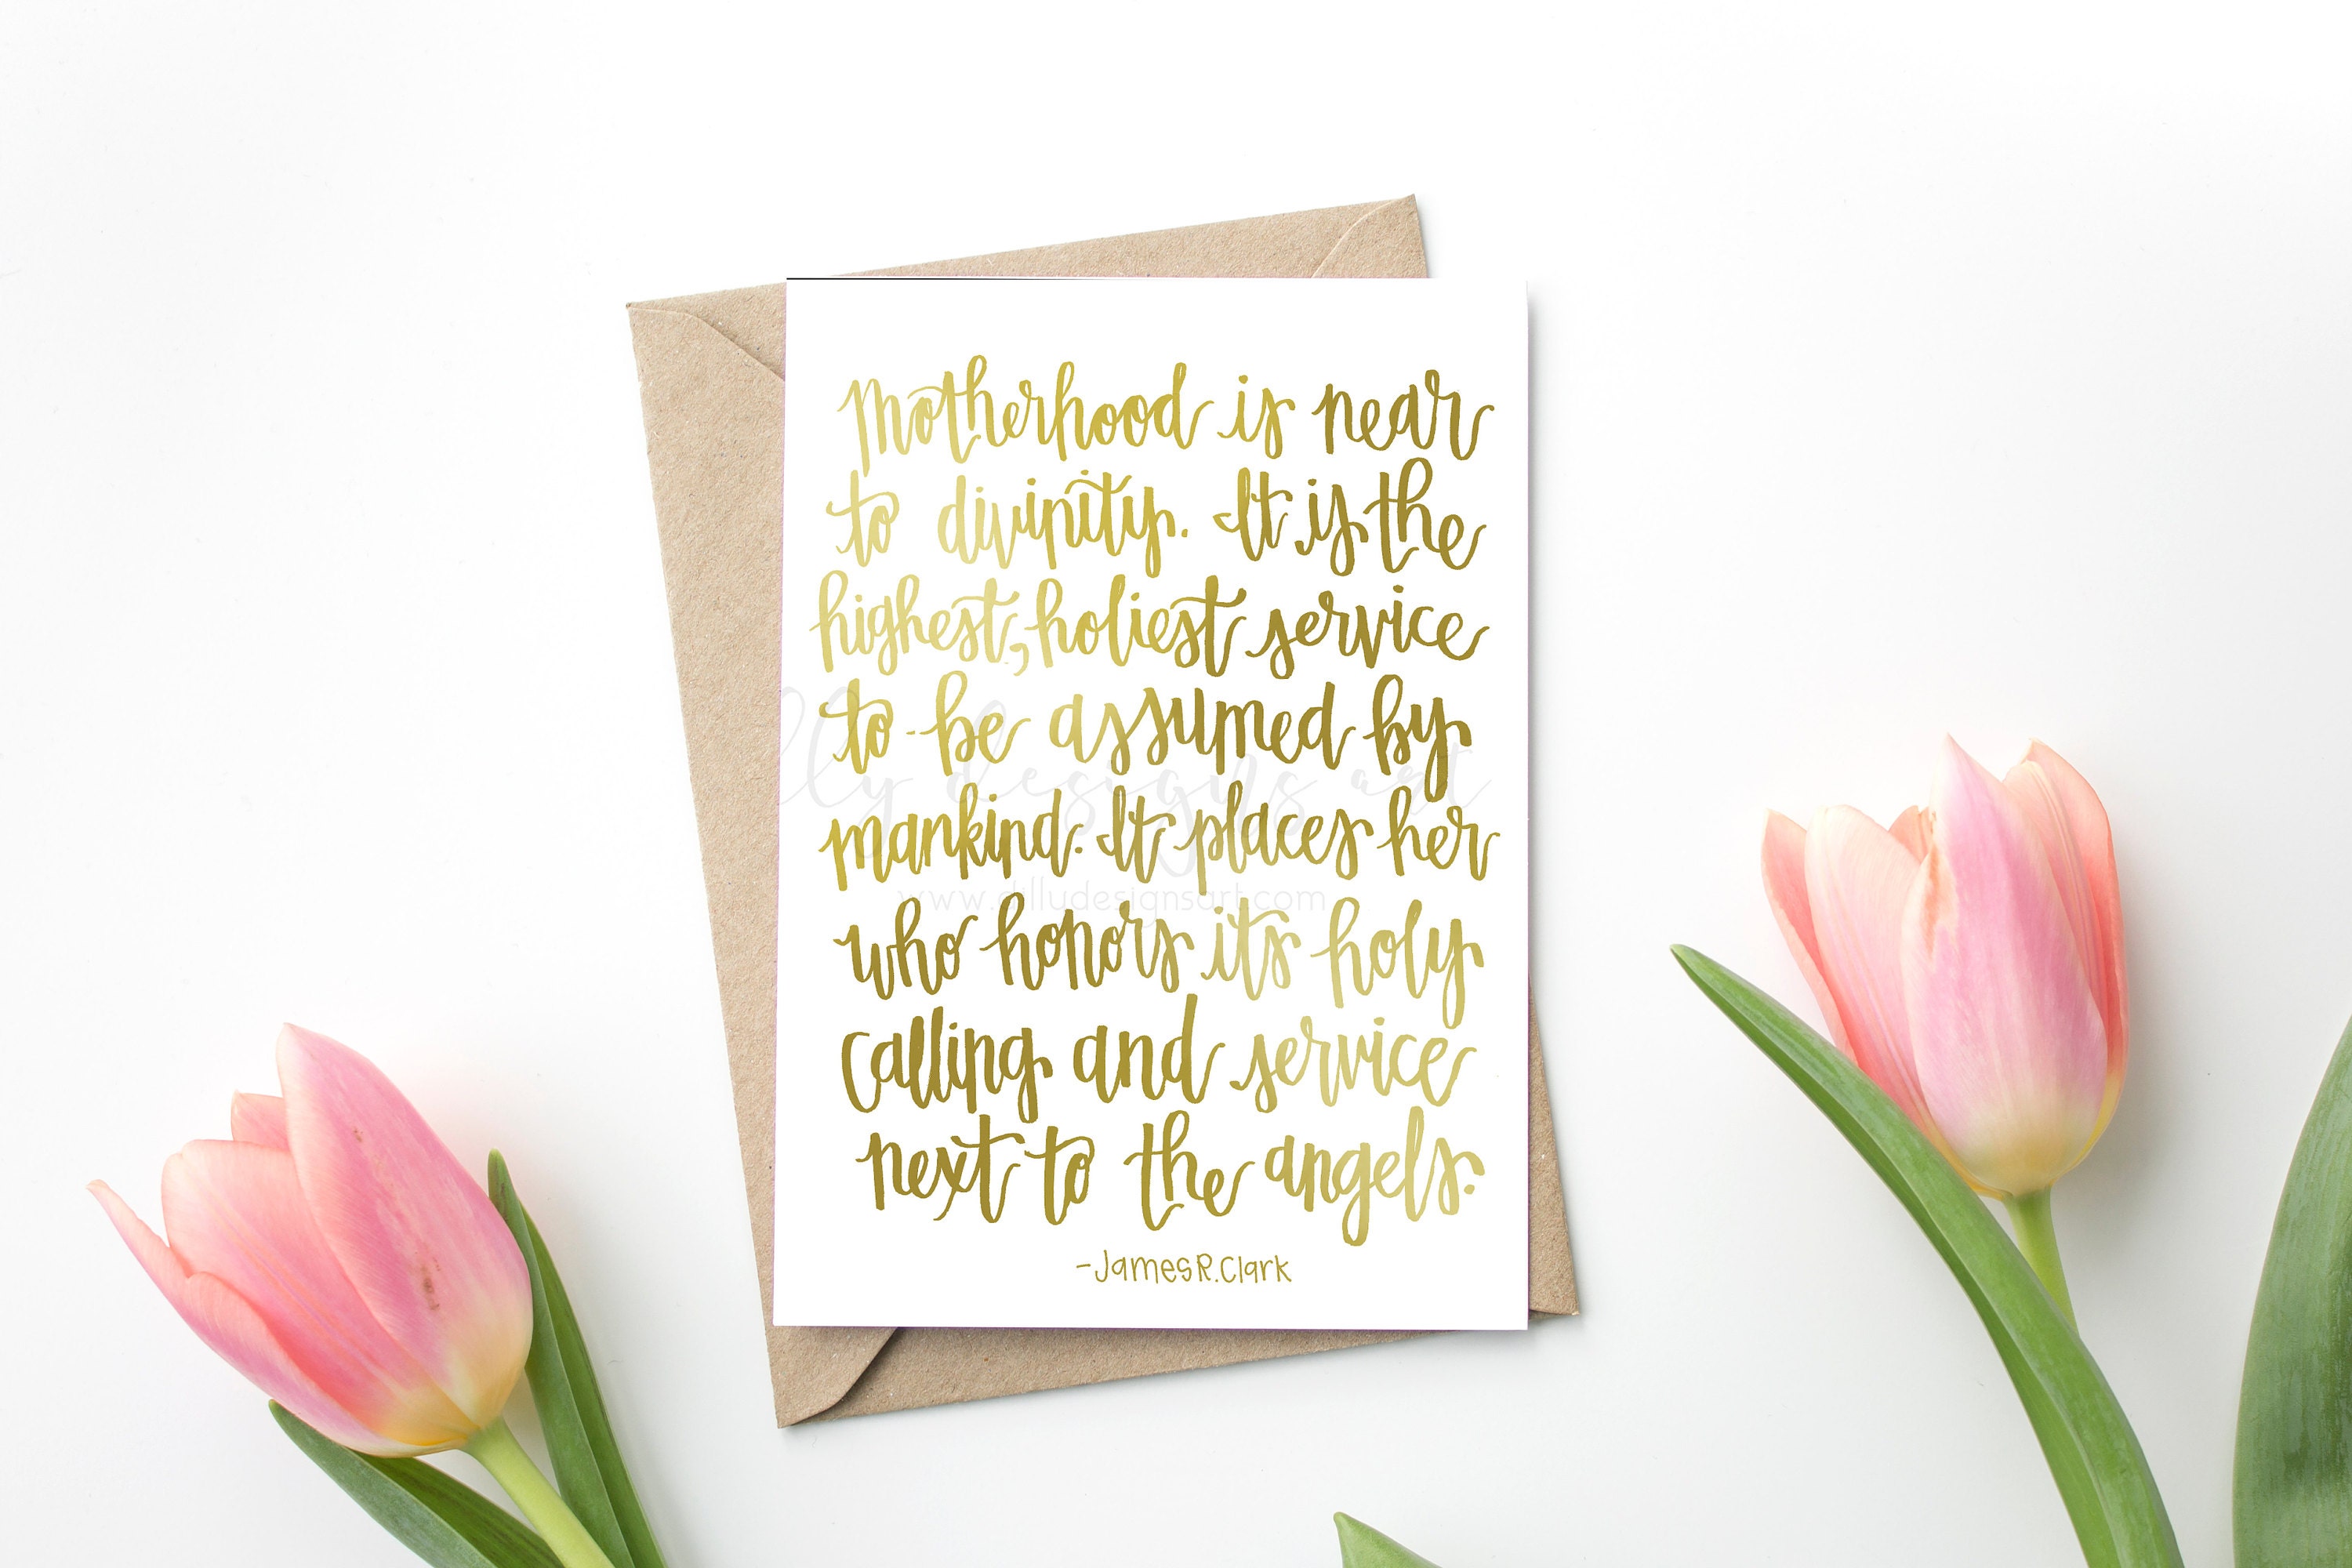 Motherhood is near
to divinity. It is the
highest, holiest service
to be assumed by
mankind. It places her
who honors its holy
calling and service
next to the angels.
-James R. Clark
lly designs art
www.dillydesignsart.com